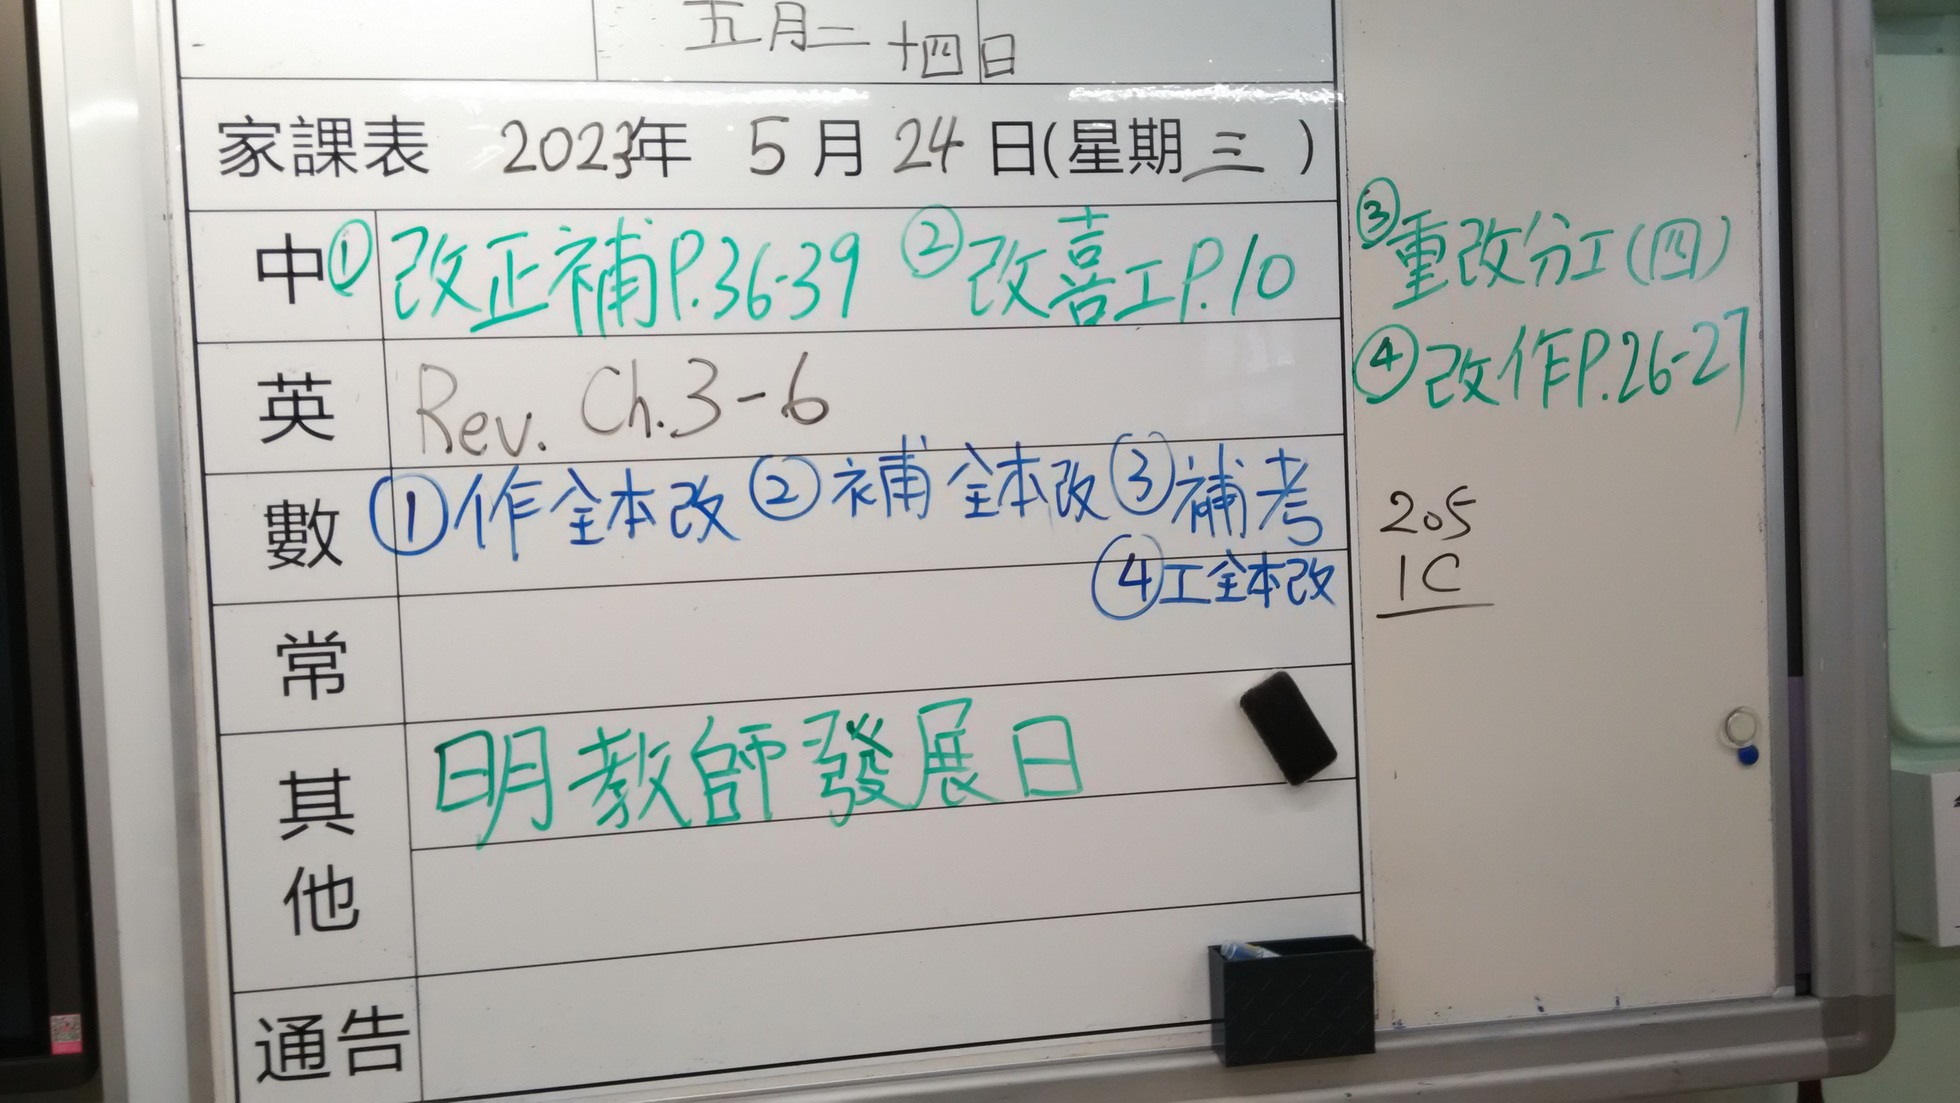 五月二十四日
家課表 2023年 5月24日(星期三)
中 ①改正補P.36-39 ②改喜工P.10
③重改分工(四)
④改作P.26-27
英 Rev. Ch.3-6
數 ①作全本改②補全本改③補考
④工全本改
205
1C
常
其他 明教師發展日
通告